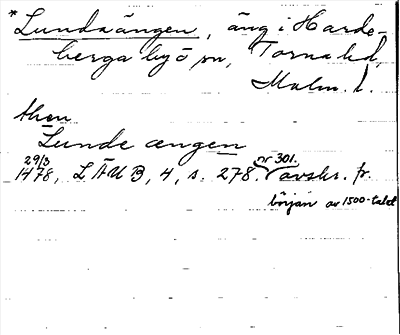 * Lundaängen, äng i Harde-
berga by o sn, Torna hd,
Malm. l.
then
Lunde ængen
29/3
1478, LÄUB, 4, s. 278. nr 301. (avskr. fr.
början av 1500-talet